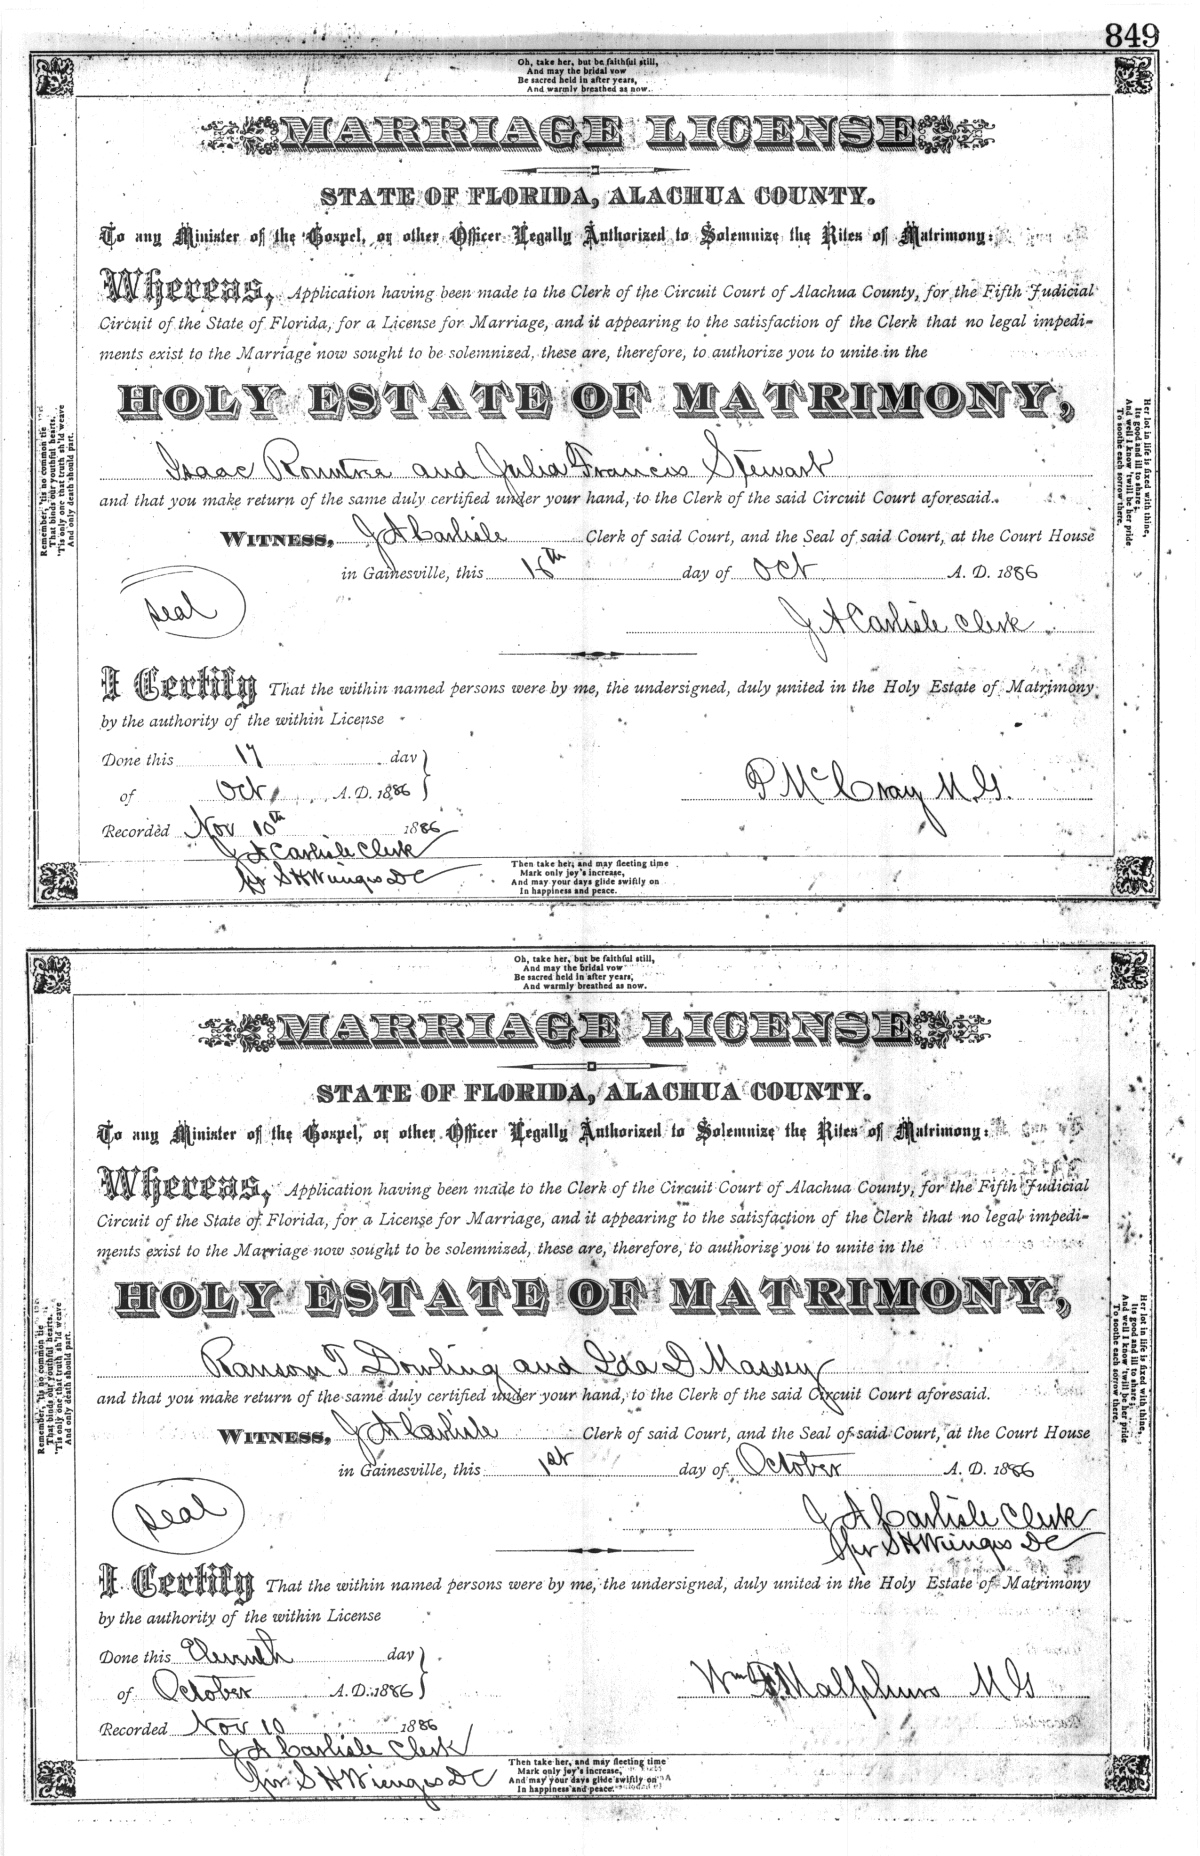 849
Oh, take her, but be faithful still,
And may the bridal vow
Be sacred held in after years,
And warmly breathed as now.
MARRIAGE LICENSE
STATE OF FLORIDA, ALACHUA COUNTY.
To any Minister of the Gospel, or other Officer Legally Authorized to Solemnize the Rites of Matrimony:
Whereas, Application having been made to the Clerk of the Circuit Court of Alachua County, for the Fifth Judicial
Circuit of the State of Florida, for a License for Marriage, and it appearing to the satisfaction of the Clerk that no legal impedi-
ments exist to the Marriage now sought to be solemnized, these are, therefore, to authorize you to unite in the
HOLY ESTATE OF MATRIMONY,
Isaac Rountree and Julia Francis Stewart
and that you make return of the same duly certified under your hand, to the Clerk of the said Circuit Court aforesaid.
WITNESS, J A Carlisle Clerk of said Court, and the Seal of said Court, at the Court House
in Gainesville, this 16th day of Oct A. D. 1886
Seal
J A Carlisle Clerk
I Certify That the within named persons were by me, the undersigned, duly united in the Holy Estate of Matrimony
by the authority of the within License
Done this 17 day
of Oct A. D. 1886
P McCray M.G.
Recorded Nov 10th 1886
J A Carlisle Clerk
pr S H Wienges DC
Remember, 'tis no common tie
That binds our youthful hearts,
'Tis only one that truth sh'ld weave
And only death should part.
Her lot in life is fixed with thine,
Its good and ill to share;
And well I know 'twill be her pride
To soothe each sorrow there.
Then take her, and may fleeting time
Mark only joy's increase,
And may your days glide swiftly on
In happiness and peace.
Oh, take her, but be faithful still,
And may the bridal vow
Be sacred held in after years,
And warmly breathed as now.
MARRIAGE LICENSE
STATE OF FLORIDA, ALACHUA COUNTY.
To any Minister of the Gospel, or other Officer Legally Authorized to Solemnize the Rites of Matrimony:
Whereas, Application having been made to the Clerk of the Circuit Court of Alachua County, for the Fifth Judicial
Circuit of the State of Florida, for a License for Marriage, and it appearing to the satisfaction of the Clerk that no legal impedi-
ments exist to the Marriage now sought to be solemnized, these are, therefore, to authorize you to unite in the
HOLY ESTATE OF MATRIMONY,
Ranson T Dowling and Ida D Massey
and that you make return of the same duly certified under your hand, to the Clerk of the said Circuit Court aforesaid.
WITNESS, J A Carlisle Clerk of said Court, and the Seal of said Court, at the Court House
in Gainesville, this 1st day of October A. D. 1886
Seal
J A Carlisle Clerk
pr S H Wienges DC
I Certify That the within named persons were by me, the undersigned, duly united in the Holy Estate of Matrimony
by the authority of the within License
Done this Eleventh day
of October A. D. 1886
Malphurs M G
Recorded Nov 10 1886
J A Carlisle Clerk
pr S H Wienges DC
Remember, 'tis no common tie
That binds our youthful hearts,
'Tis only one that truth sh'ld weave
And only death should part.
Her lot in life is fixed with thine,
Its good and ill to share;
And well I know 'twill be her pride
To soothe each sorrow there.
Then take her, and may fleeting time
Mark only joy's increase,
And may your days glide swiftly on
In happiness and peace.